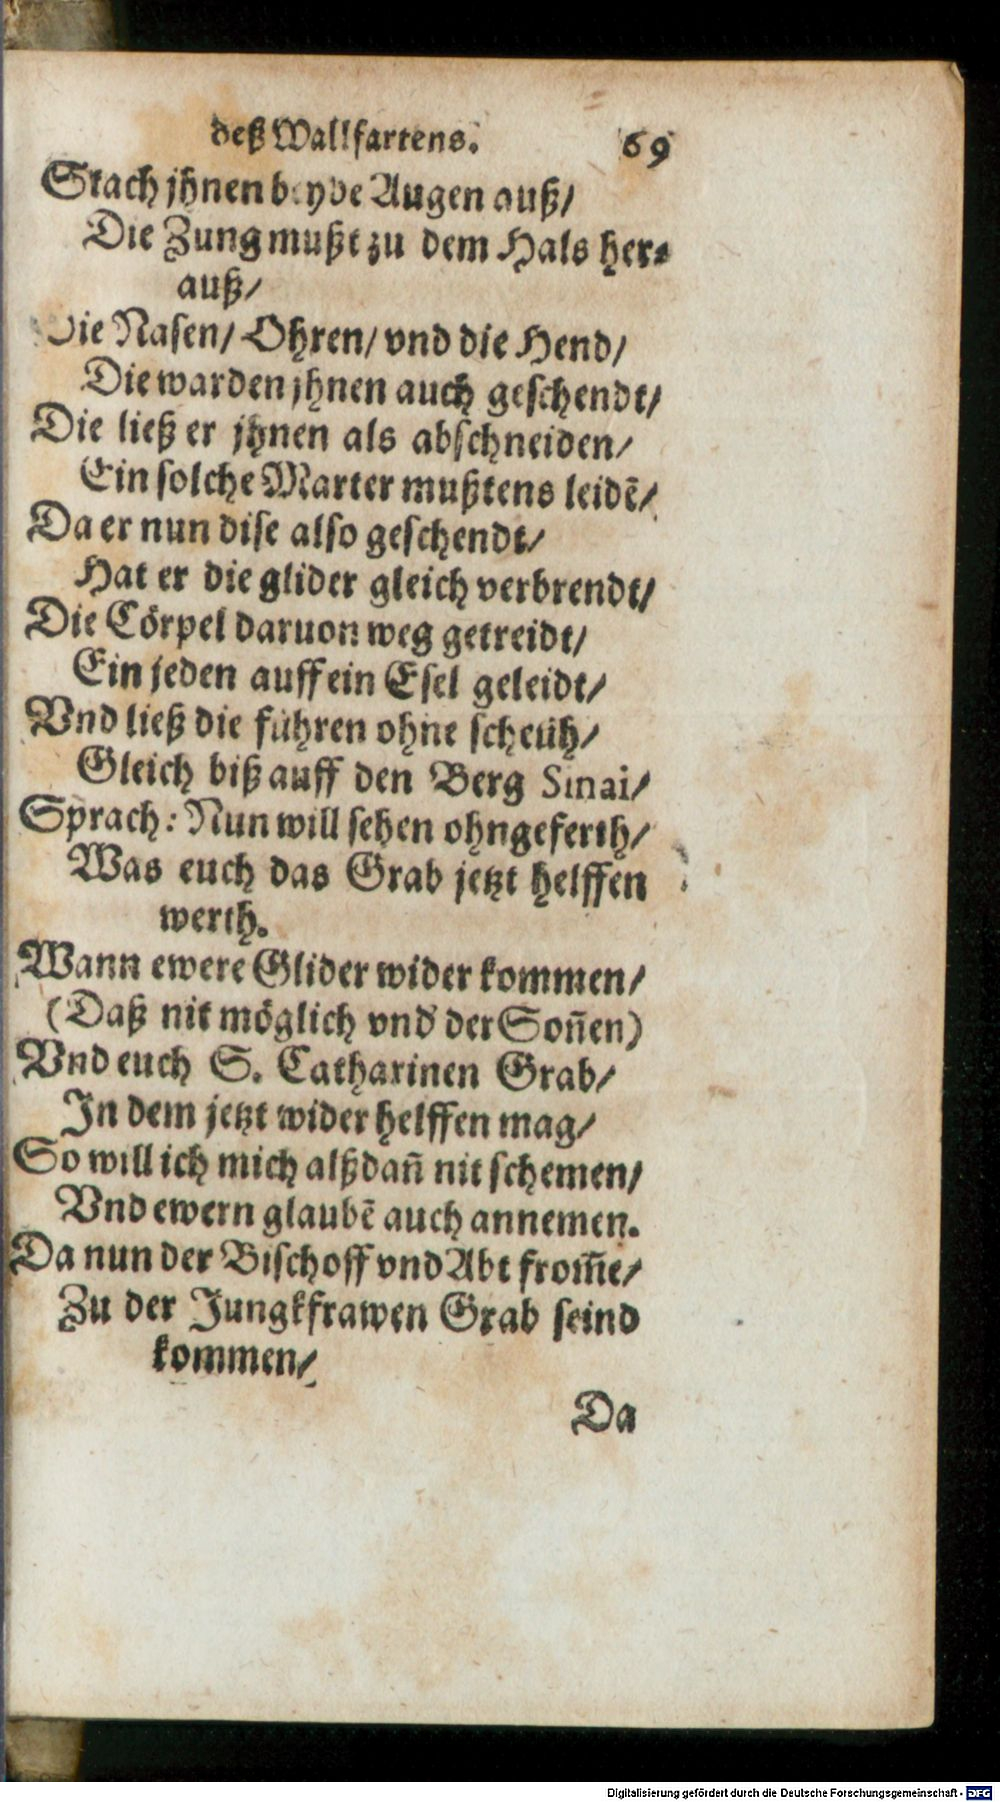 deß Wallfartens. 69
Stach jhnen beyde Augen auß/
Die Zung mußt zu dem Hals her-
auß/
Die Nasen/ Ohren/ vnd die Hend/
Die warden jhnen auch geschendt/
Die ließ er jhnen als abschneiden/
Ein solche Marter mußtens leidē/
Da er nun dise also geschendt/
Hat er die glider gleich verbrendt/
Die Cörpel daruon weg getreidt/
Ein jeden auff ein Esel geleidt/
Vnd ließ die führen ohne scheüh/
Gleich biß auff den Berg Sinai/
Sprach: Nun will sehen ohngeferth/
Was euch das Grab jetzt helffen
werth.
Wann ewere Glider wider kommen/
(Daß nit möglich vnd der Soñen)
Vnd euch S. Catharinen Grab/
In dem jetzt wider helffen mag/
So will ich mich alßdañ nit schemen/
Vnd ewern glaubē auch annemen.
Da nun der Bischoff vnd Abt from̄e/
Zu der Jungkfrawen Grab seind
kommen/
Da
Digitalisierung gefördert durch die Deutsche Forschungsgemeinschaft - DFG